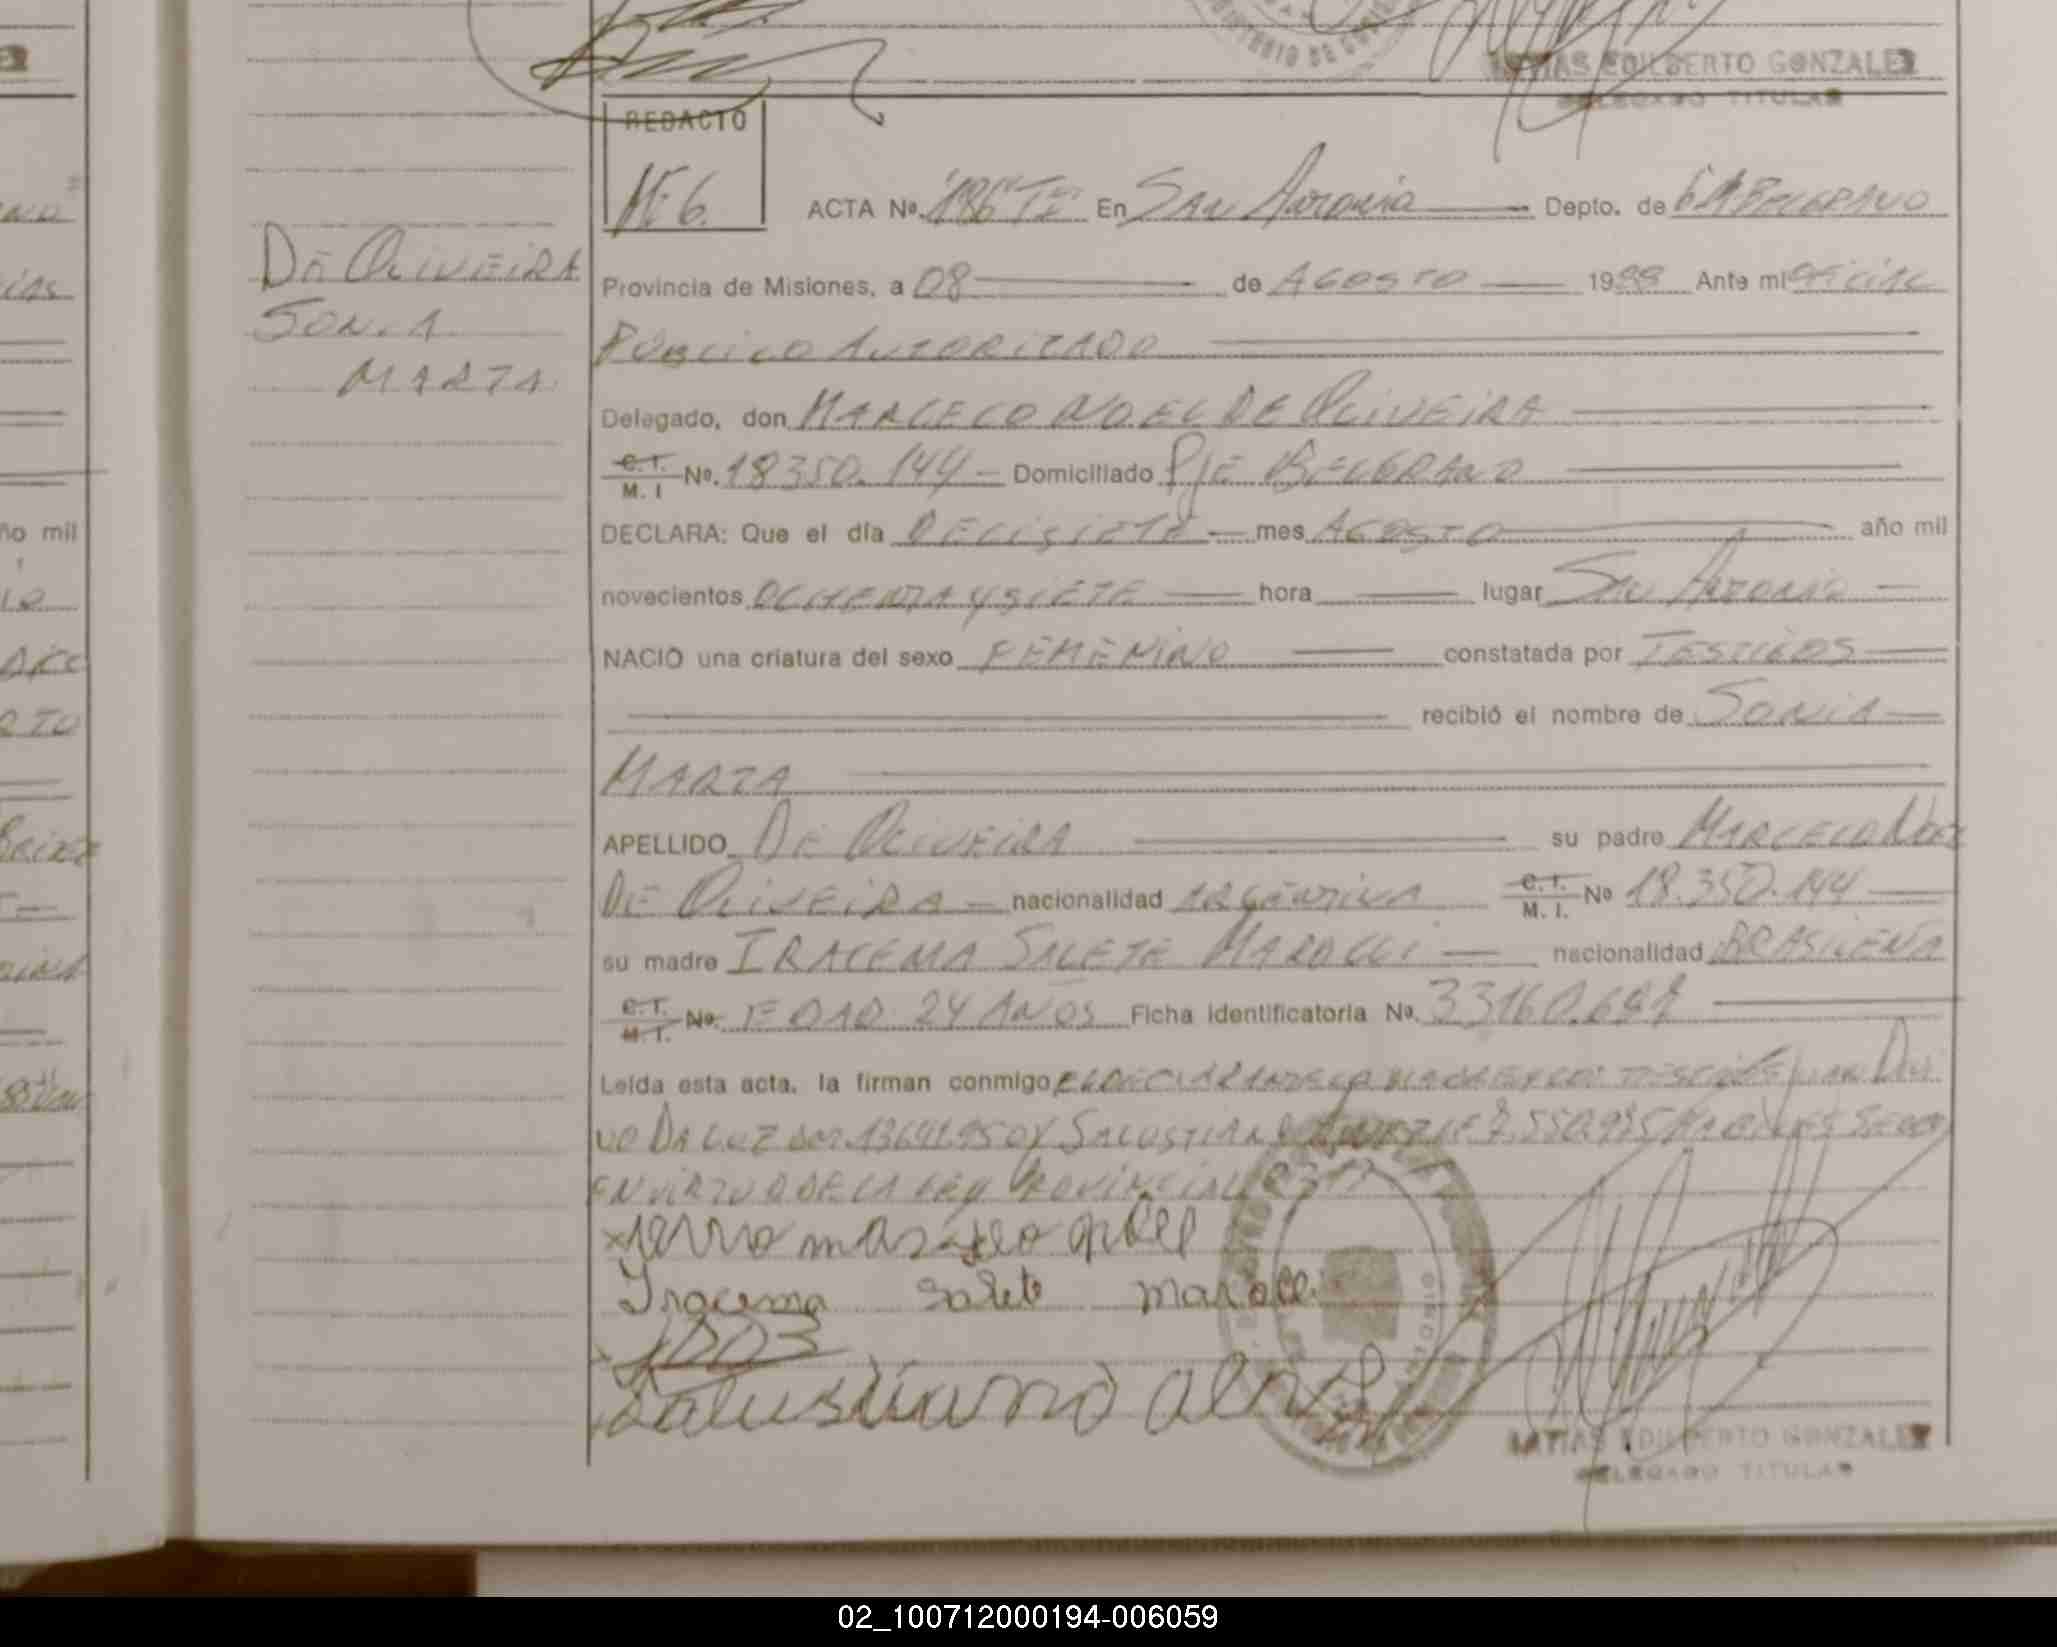 MATIAS EDILBERTO GONZALEZ
DELEGADO TITULAR
REDACTO
ACTA Nº 186 "TE" En San Antonio Depto. de G M BELGRANO
DE OLIVEIRA
SONIA
MARTA
Provincia de Misiones, a 08 de AGOSTO 1988 Ante mi OFICIAL
PUBLICO AUTORIZADO
Delegado, don MARCELO NOEL DE OLIVEIRA
C.I. M. I Nº. 18350.144 Domiciliado PJE BELGRANO
DECLARA: Que el día DECISIETE mes AGOSTO año mil
novecientos OCHENTA Y SIETE hora lugar San Antonio
NACIÓ una criatura del sexo FEMENINO constatada por TESTIGOS
recibió el nombre de SONIA
MARTA
APELLIDO DE OLIVEIRA su padre MARCELO NOEL
DE OLIVEIRA nacionalidad ARGENTINA C.I. M. I. Nº 18.350.144
su madre IRACEMA SALETE MAROLLI nacionalidad BRASILEÑA
C.I. M.I. Nº. EDAD 24 AÑOS Ficha identificatoria Nº.
Leída esta acta, la firman conmigo EL DECLARANTE LA MADRE Y LOS TESTIGOS
DA LUZ
EN VIRTUD DE LA LEY PROVINCIAL
Iracema Salete Marolli
salustiano
MATIAS EDILBERTO GONZALEZ
DELEGADO TITULAR
02_100712000194-006059